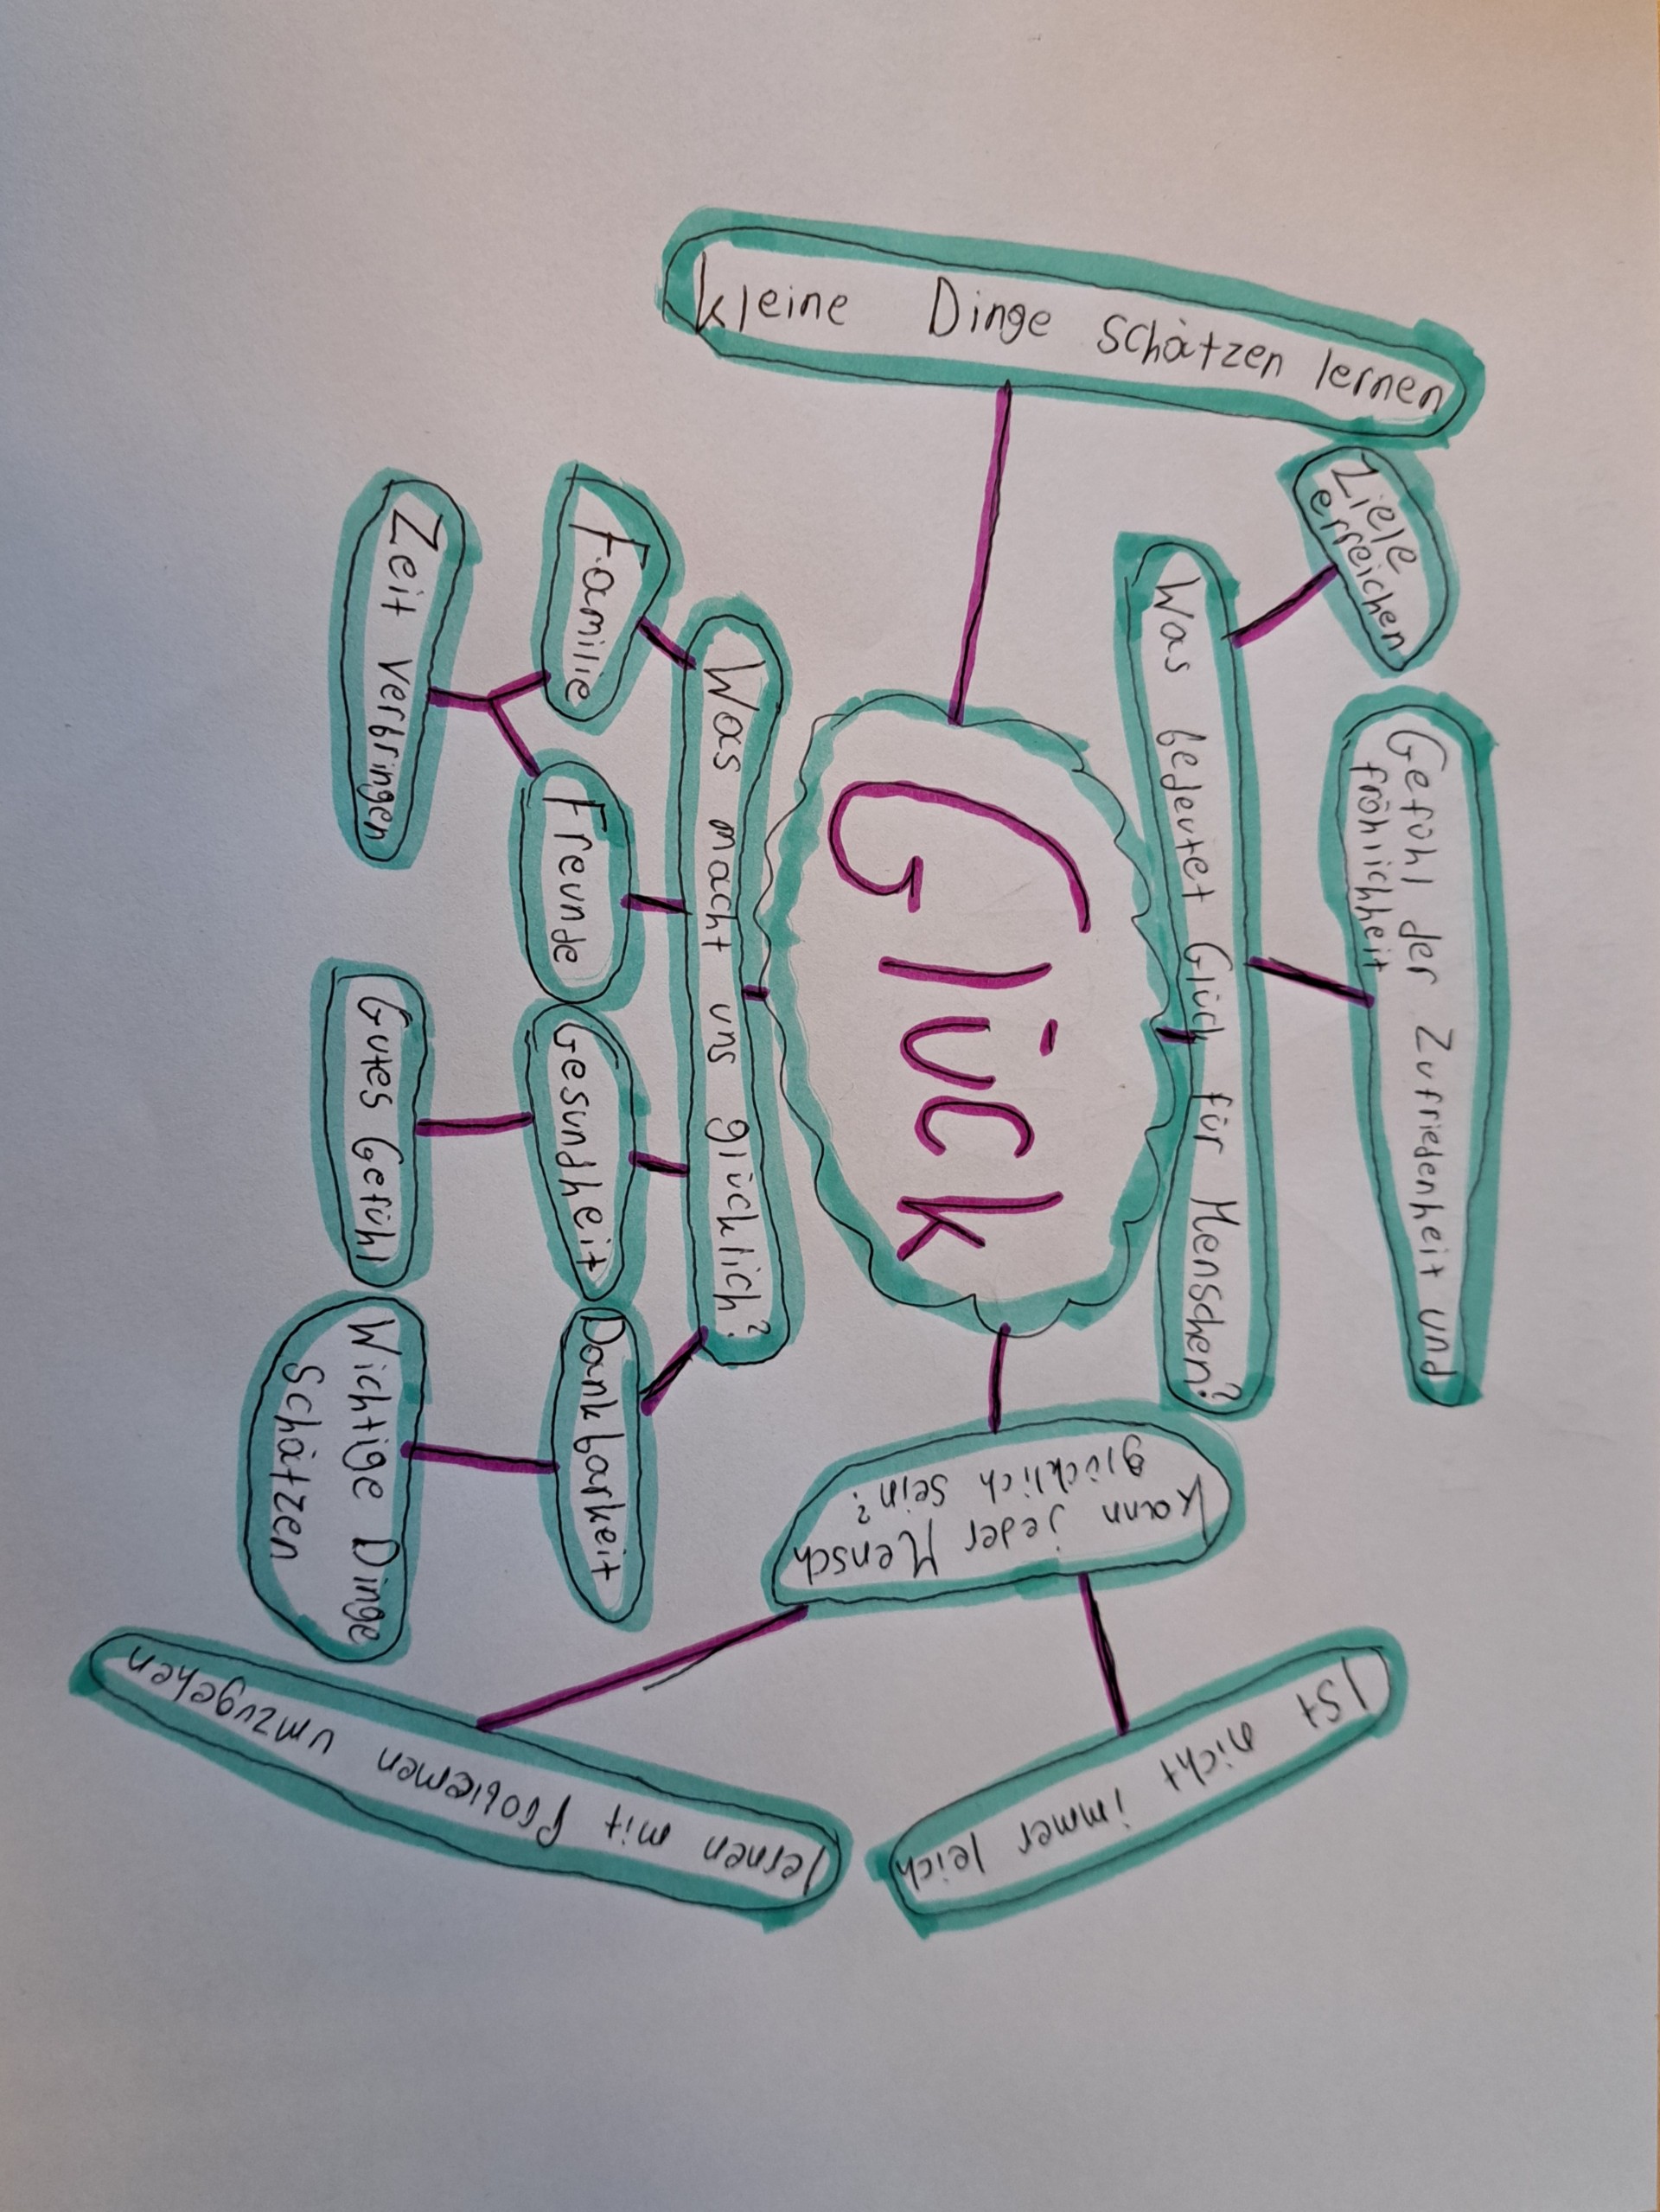 Gefühl der Zufriedenheit und
fröhlichheit
Ziele
erreichen
Was bedeutet Glück für Menschen?
kleine Dinge schätzen lernen
Glück
kann jeder Mensch
glücklich sein?
Ist nicht immer leich
lernen mit Problemen umzugehen
Was macht uns glücklich?
Familie
Freunde
Gesundheit
Dankbarkeit
Zeit verbringen
Gutes Gefühl
Wichtige Dinge
Schätzen